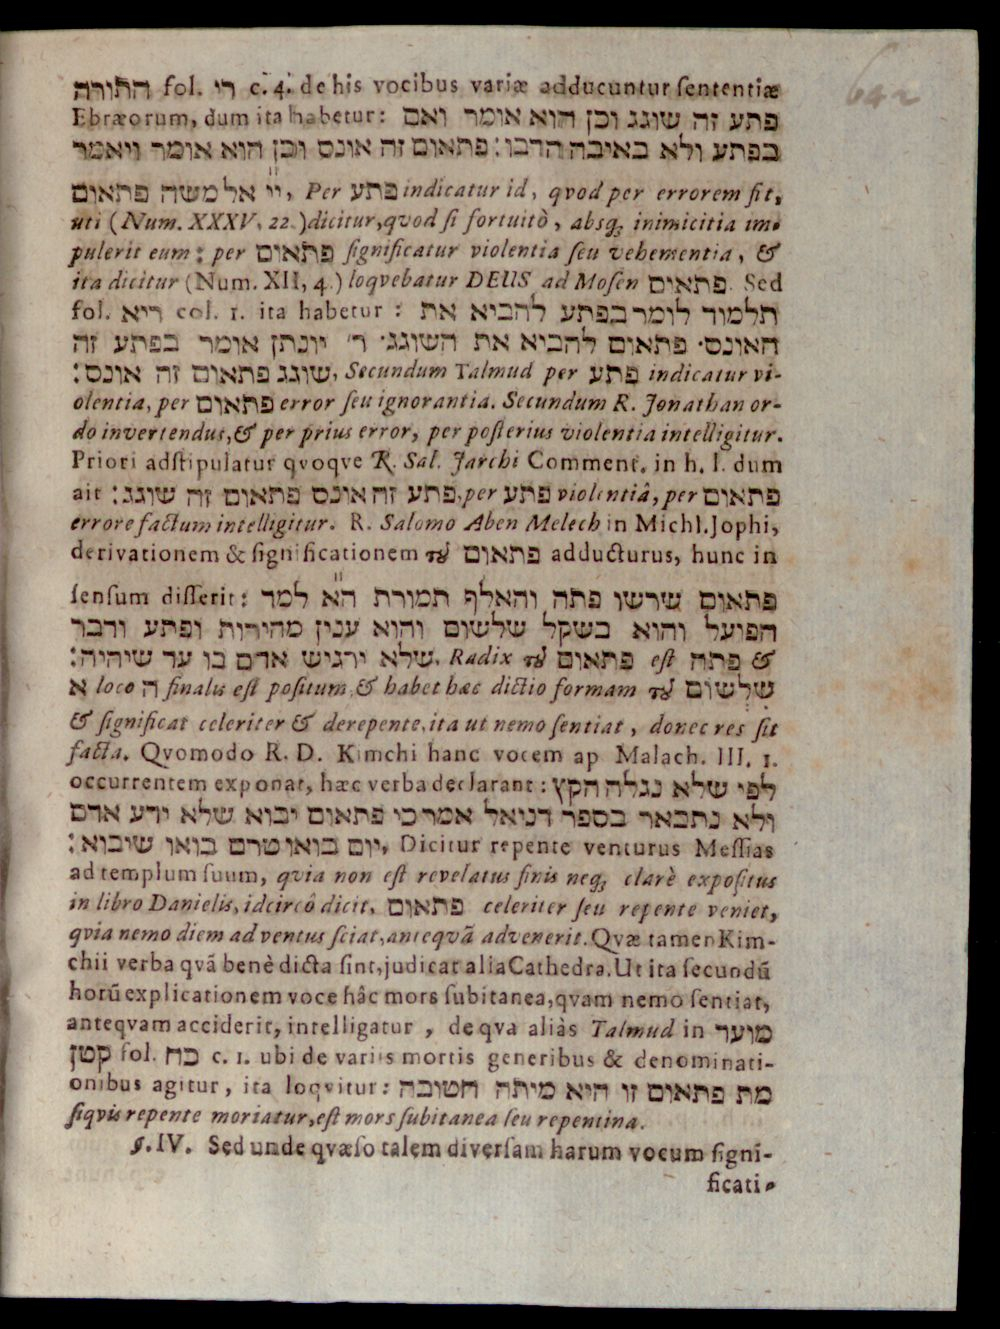 642
התורה fol. רי c. 4. de his vocibus variæ adducuntur ſententiæ
Ebræorum, dum ita habetur: פתע זה שוגג וכן הוא אומר ואם
בפתע ולא באיבה הדבו: פתאום זה אונס וכן הוא אומר ויאמר
יי אל משה פתאום, Per פתע indicatur id, qvod per errorem fit,
uti (Num. XXXV, 22.) dicitur, qvod ſi fortuitò, absq; inimicitia im-
pulerit eum: per פתאום ſignificatur violentia ſeu vehementia, &
ita dicitur (Num. XII, 4.) loqvebatur DEUS ad Moſen פתאים. Sed
fol. ריא col. 1. ita habetur: תלמוד לומר בפתע להביא את
האונס· פתאום להביא את השוגג· ר׳ יונתן אומר בפתע זה
שוגג פתאום זה אונס:, Secundum Talmud per פתע indicatur vi-
olentia, per פתאום error ſeu ignorantia. Secundum R. Jonathan or-
do invertendus, & per prius error, per poſterius violentia intelligitur.
Priori adſtipulatur qvoqve R. Sal. Jarchi Comment. in h. l. dum
ait: פתע זה אונס פתאום זה שוגג, per פתע violentiâ, per פתאום
errore factum intelligitur. R. Salomo Aben Melech in Michl. Jophi,
derivationem & ſignificationem פתאום adducturus, hunc in
ſenſum diſſerit: פתאום שרשו פתה והאלף תמורת הא למד
הפועל והוא בשקל שלשום והוא ענין מהירות ופתע ודבר
שלא ירגיש אדם בו עד שיהיה:, Radix פתאום est פתה &
א loco ה finalis est poſitum, & habet hæc dictio formam שלשום
& ſignificat celeriter & derepente, ita ut nemo ſentiat, donec res ſit
facta. Qvomodo R. D. Kimchi hanc vocem ap Malach. III. 1.
occurrentem exponat, hæc verba declarant: לפי שלא נגלה הקץ
ולא נתבאר בספר דניאל אמר כי פתאום יבוא שלא ידע אדם
יום בואו טרם בואו שיבוא:, Dicitur repente venturus Meſſias
ad templum ſuum, qvia non est revelatus finis neq; clarè expoſitus
in libro Danielis, idcircô dicit, פתאום celeriter ſeu repente veniet,
qvia nemo diem adventus ſciat, anteqvã advenerit. Qvæ tamen Kim-
chii verba qvã benè dicta ſint, judicat alia Cathedra. Ut ita ſecundũ
horũ explicationem voce hâc mors ſubitanea, qvam nemo ſentiat,
anteqvam acciderit, intelligatur, de qva aliàs Talmud in מוער
קטן fol. כח c. 1. ubi de variis mortis generibus & denominati-
onibus agitur, ita loqvitur: מת פתאום זו היא מיתה חטובה
ſiqvis repente moriatur, est mors ſubitanea ſeu repentina.
§. IV. Sed unde qvæſo talem diverſam harum vocum ſigni-
ficati-